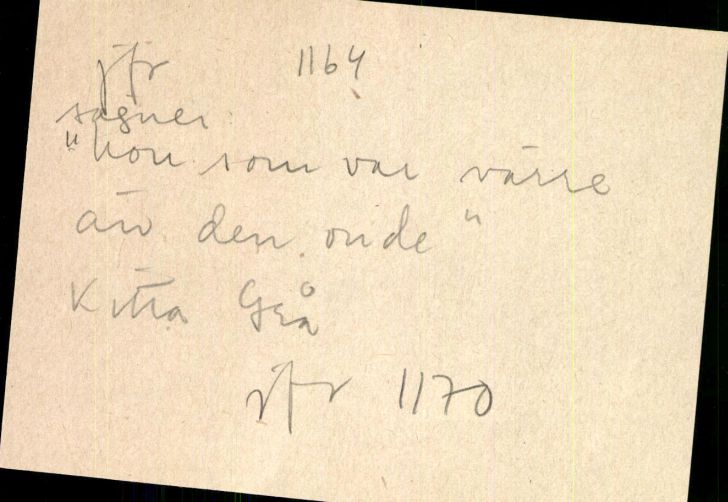 jfr 1164
sägner
"hon som var värre
än den onde"
Kitta Grå
jfr 1170